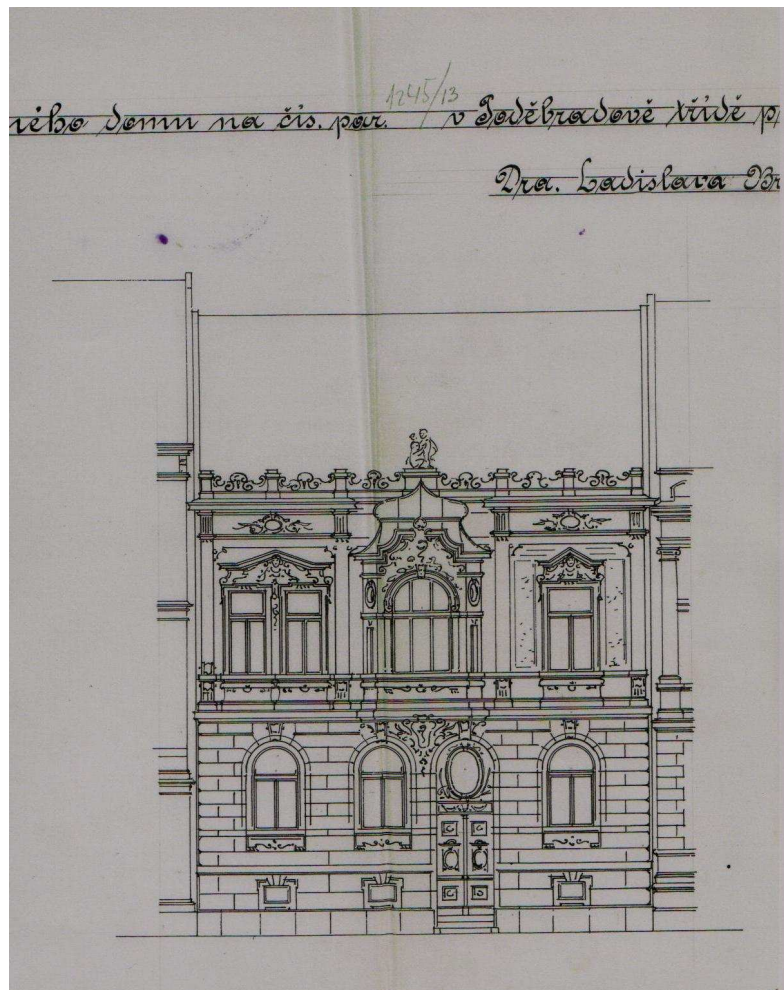 ného domu na čís. par. 1245/13 v Poděbradově třídě p
Dra. Ladislava Br